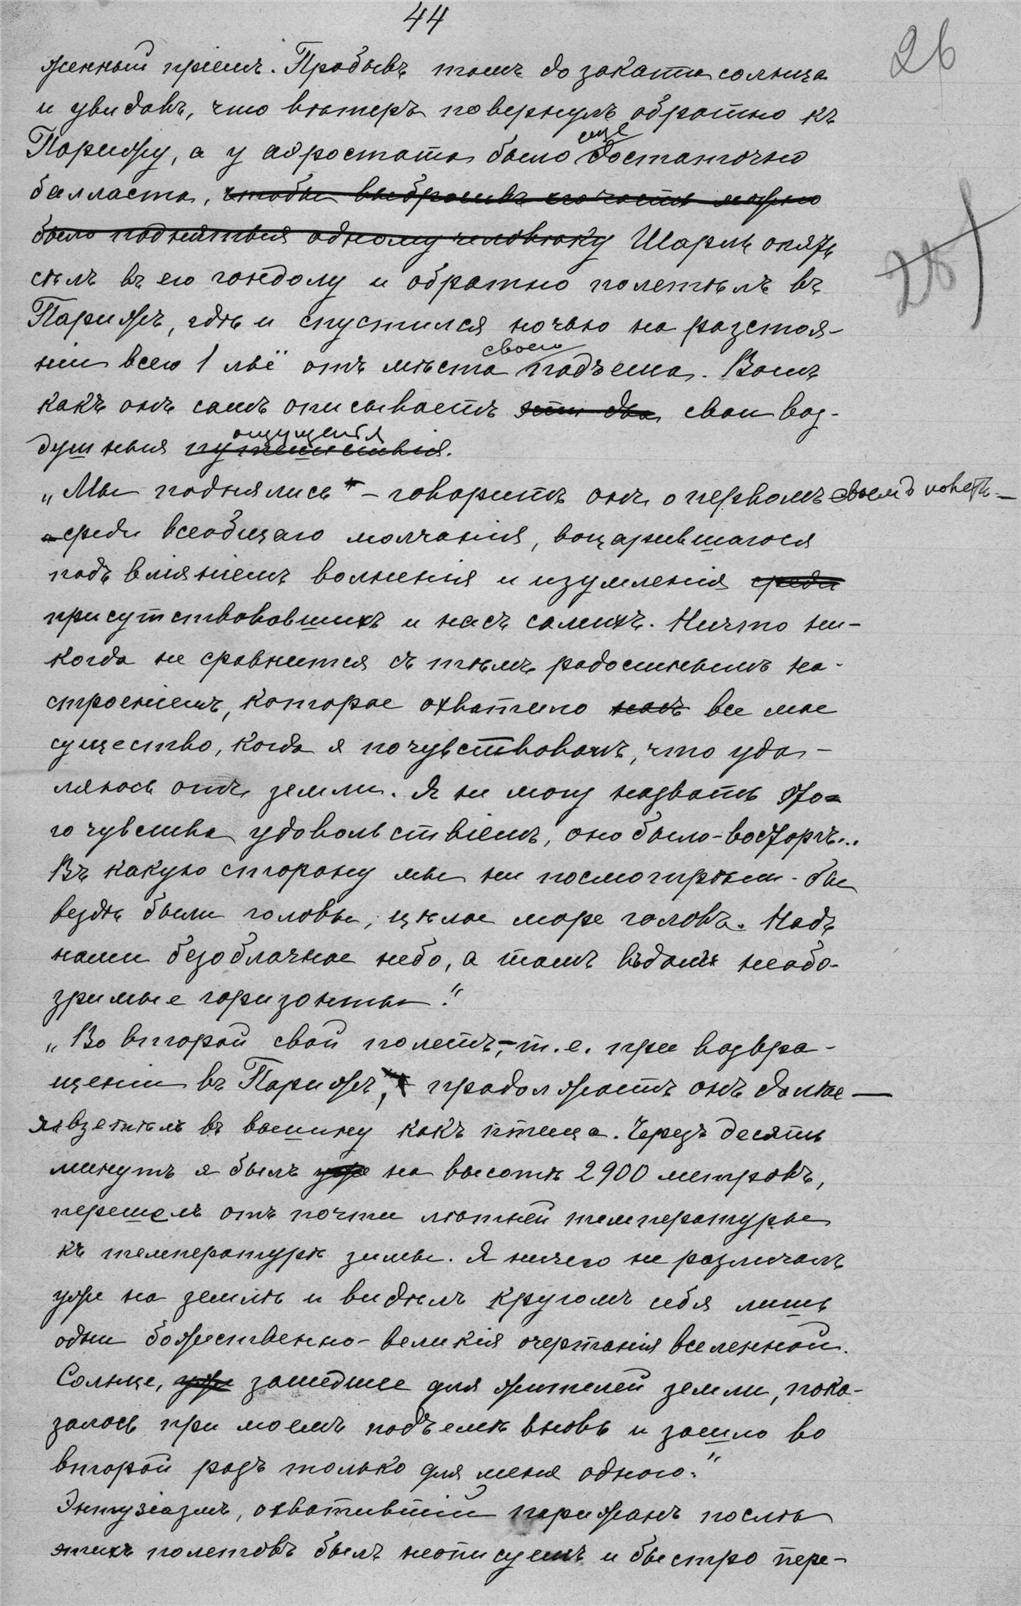 44
26
28
женный пріемъ. Пробывъ тамъ до заката солнца
и увидавъ, что вѣтеръ повернулъ обратно къ
еще
Парижу, а у аэростата было достаточно
балласта, чтобы выбросивъ его часть можно
было подняться одному человѣку Шарль опять
сѣлъ въ его гондолу и обратно полетѣлъ въ
Парижъ, гдѣ и спустился ночью на разстоя-
своего
ніи всего 1 льё отъ мѣста подъема. Вотъ
какъ онъ самъ описываетъ эти два свои воз-
ощущенія
душныя путешествія.
„Мы поднялись" – говоритъ онъ о первомъ своемъ полетѣ –
среди всеобщаго молчанія, воцарившагося
подъ вліяніемъ волненія и изумленія среди
присутствовавшихъ и насъ самихъ. Ничто ни-
когда не сравнится съ тѣмъ радостнымъ на-
строеніемъ, которое охватило все мое
существо, когда я почувствовалъ, что уда-
ляюсь отъ земли. Я не могу назвать это-
го чувства удовольствіемъ, оно было-восторгъ...
Въ какую сторону мы ни посмотрѣли-бы
вездѣ были головы, цѣлое море головъ. Надъ
нами безоблачное небо, а тамъ вдали необо-
зримые горизонты."
„Во второй свой полетъ, – т. е. при возвра-
щеніи въ Парижъ, продолжаетъ онъ далѣе –
я взлетѣлъ въ вышину какъ птица. Черезъ десять
минутъ я былъ уже на высотѣ 2900 метровъ,
перешелъ отъ почти лѣтней температуры
къ температурѣ зимы. Я ничего не различалъ
уже на землѣ и видѣлъ кругомъ себя лишь
одни божественно-великія очертанія вселенной.
Солнце, уже зашедшее для жителей земли, пока-
залось при моемъ подъемѣ вновь и зашло во
второй разъ только для меня одного."
Энтузіазмъ, охватившій парижанъ послѣ
этихъ полетовъ былъ неописуемъ и быстро пере-